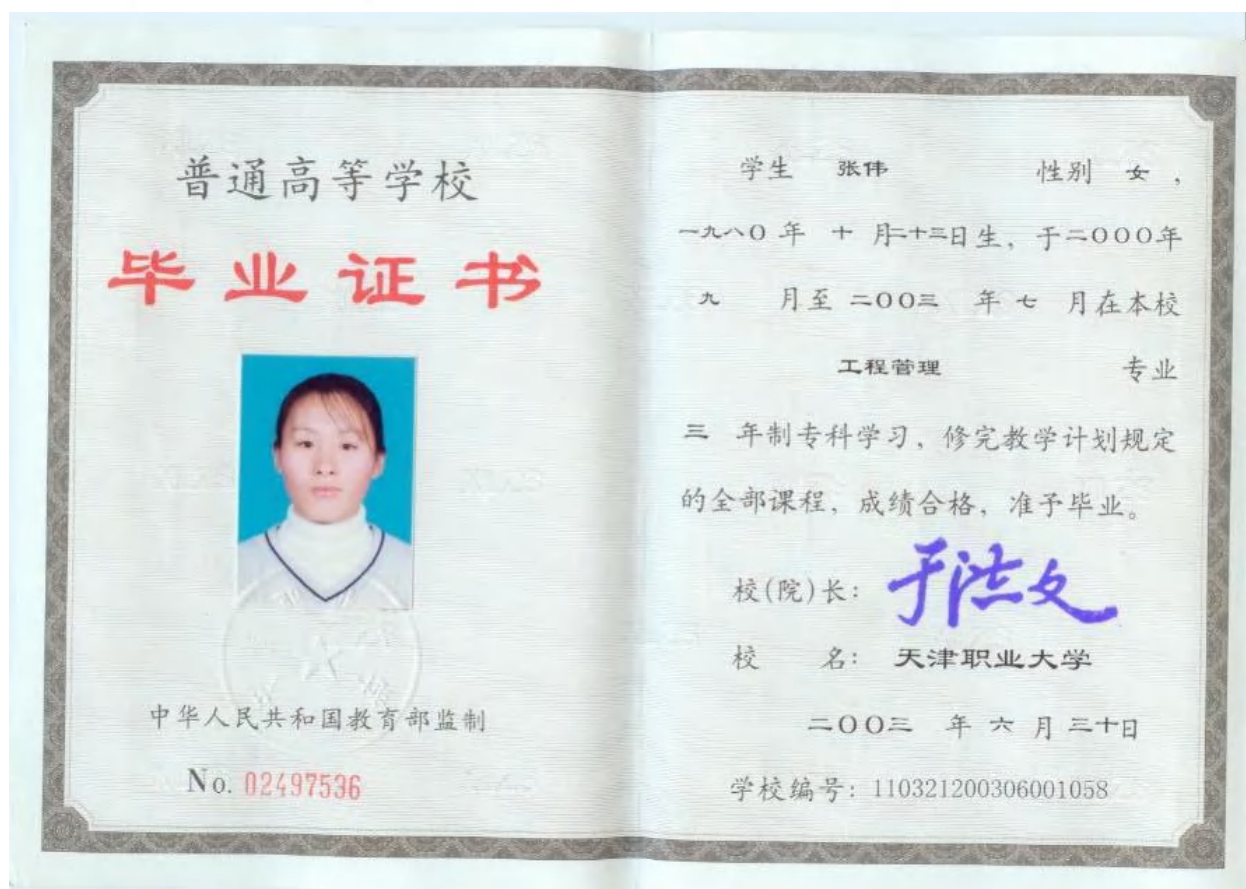 普通高等学校
毕业证书
中华人民共和国教育部监制
No. 02497536
学生 张伟 性别 女，
一九八〇年 十 月二十三日生，于二〇〇〇年
九 月至 二〇〇三 年 七 月在本校
工程管理 专业
三 年制专科学习，修完教学计划规定
的全部课程，成绩合格，准予毕业。
校(院)长：于洪文
校 名：天津职业大学
二〇〇三 年 六 月 三十日
学校编号：110321200306001058